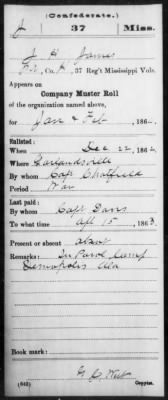 (Confederate.)
J 37 Miss.
J. H. James
Co. K, 37 Reg't Mississippi Vols.
Appears on
Company Muster Roll
of the organization named above,
for Jan & Feb, 186 .
Enlisted:
When Dec 22, 1862
Where Garlandsville
By whom Capt Chatfield
Period War
Last paid:
By whom Capt Davis
To what time Apl 15, 1863
Present or absent absent
Remarks: In Parol Camp
Demopolis Ala
Book mark:
(642) Copyist.